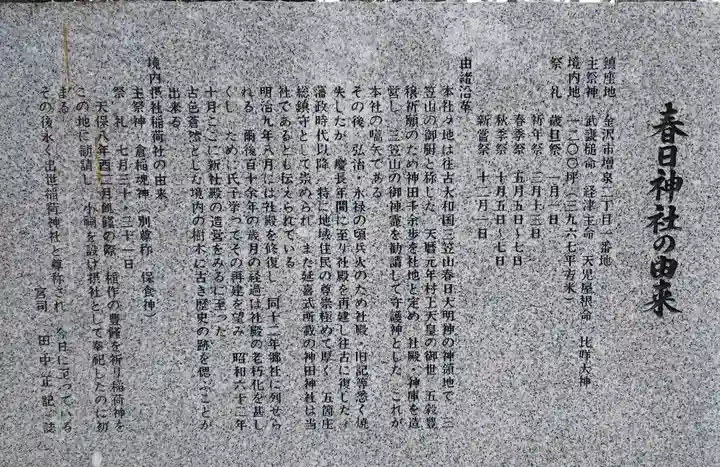 春日神社の由来
鎮座地 金沢市増泉二丁目一番地
主祭神 武甕槌命 経津主命 天児屋根命 比咩大神
境内地 一二〇〇坪(三九六七平方米)
祭礼 歳旦祭 一月一日
祈年祭 三月十三日
春季祭 五月五日~七日
秋季祭 十月五日~七日
新嘗祭 十二月一日
由緒沿革
本社々地は往古大和国三笠山春日大明神の神領地で 三
笠山の御厨と称した 天暦元年村上天皇の御世 五穀豊
穣祈願のため神田千余歩を社地と定め 社殿・神庫を造
営し 三笠山の御神霊を勧請して守護神とした これが
本社の嚆矢である
その後 弘治・永禄の頃兵火のため社殿・旧記等悉く焼
失したが 慶長年間に至り社殿を再建し往古に復した
藩政時代以降 特に地域住民の尊崇極めて厚く 五箇庄
総鎮守として崇められ また延喜式所載の神田神社は当
社であるとも伝えられている
明治九年八月には社殿を修復し 同十二年郷社に列せら
れる 爾後百十余年の歳月の経過は社殿の老朽化を甚し
くし ために氏子挙ってその再建を望み 昭和六十二年
十月ここに新社殿の造営をみるに至った
古色蒼然とした境内の樹木に古き歴史の跡を偲ぶことが
出来る
境内摂社稲荷社の由来
主祭神 倉稲魂神(別尊称 保食神)
祭礼 七月三十・三十一日
天保八年酉二月飢饉の際 稲作の豊饒を祈り稲荷神を
この地に勧請し 小祠を設け摂社として奉祀したのに初
まる
その後永く出世稲荷神社と尊称され 今日に至っている
宮司 田中正記 誌